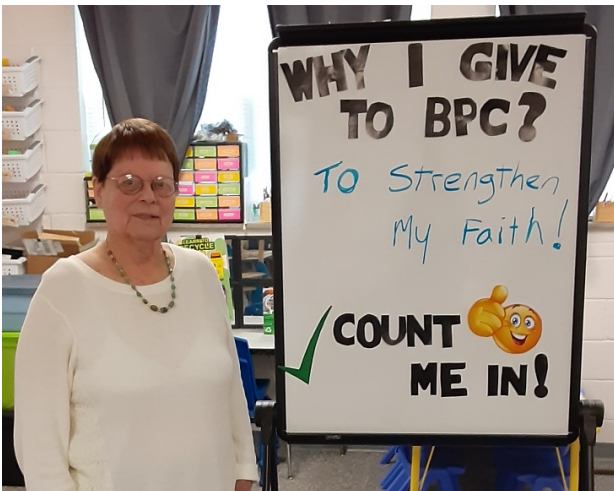 WHY I GIVE
TO BPC?
To Strengthen
My Faith!
COUNT
ME IN!
RECYCLE